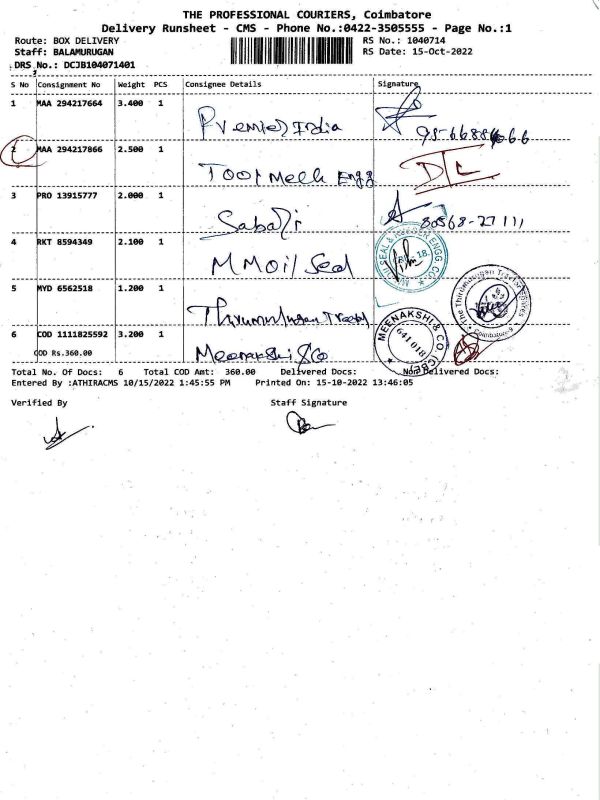 THE PROFESSIONAL COURIERS, Coimbatore
Delivery Runsheet - CMS - Phone No.:0422-3505555 - Page No.:1
Route: BOX DELIVERY RS No.: 1040714
Staff: BALAMURUGAN RS Date: 15-Oct-2022
DRS No.: DCJB104071401
S No Consignment No Weight PCS Consignee Details Signature
1 MAA 294217664 3.400 1
Premier India
2 MAA 294217866 2.500 1
Tool Mech Engg DTL
3 PRO 13915777 2.000 1
Sabari 80568-27111
4 RKT 8594349 2.100 1
M M Oil Seal
5 MYD 6562518 1.200 1
6 COD 1111825592 3.200 1
COD Rs.360.00 Meenakshi & Co
MEENAKSHI & CO
641 018
(CBE)
Total No. Of Docs: 6 Total COD Amt: 360.00 Delivered Docs: Non Delivered Docs:
Entered By :ATHIRACMS 10/15/2022 1:45:55 PM Printed On: 15-10-2022 13:46:05
Verified By Staff Signature